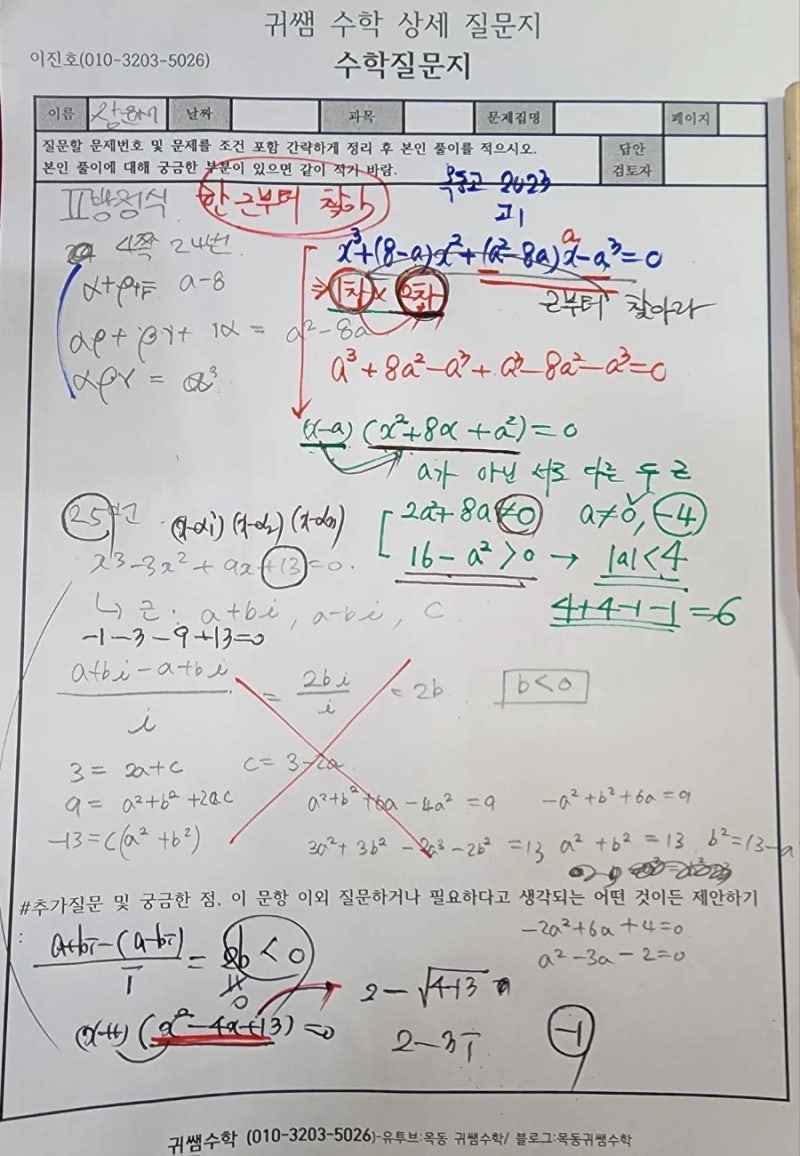 귀쌤 수학 상세 질문지
이진호(010-3203-5026)
수학질문지
이름 날짜 과목 문제집명 페이지
질문할 문제번호 및 문제를 조건 포함 간략하게 정리 후 본인 풀이를 적으시오.
본인 풀이에 대해 궁금한 부분이 있으면 같이 적기 바람.
답안
검토자
II방정식 한 근부터 찾아
목동고 2023
고1
4쪽 24번
x³+(8-a)x²+(a²-8a)x-a³=0
a
α+β+γ= a-8
⇒ 1차 × 2차
근부터 찾아라
αβ + βγ + γα = a²-8a
αβγ = a³
a³+8a²-a³+a³-8a²-a³=0
(x-a)(x²+8x+a²)=0
a가 아닌 서로 다른 두 근
25번
(x-α1)(x-α2)(x-α3)
2a²+8a≠0 a≠0, -4
x³-3x²+9x+13=0.
16-a²>0 → |a|<4
↳ 근: a+bi, a-bi, c
4+4-1-1=6
-1-3-9+13=0
a+bi-a+bi / i = 2bi / i = 2b. b<0
3 = 2a+c c = 3-2a
9 = a²+b²+2ac a²+b²+6a-4a²=9 -a²+b²+6a=9
-13=c(a²+b²) 3a²+3b²-2a³-2b²=13 a²+b²=13 b²=13-a
#추가질문 및 궁금한 점, 이 문항 이외 질문하거나 필요하다고 생각되는 어떤 것이든 제안하기
:
-2a²+6a+4=0
a²-3a-2=0
a+bi-(a-bi) / i = 2b < 0
0
2-√4-13
(x+1)(x²-4x+13)=0
2-3i
-1
귀쌤수학 (010-3203-5026)-유투브:목동 귀쌤수학/ 블로그:목동귀쌤수학